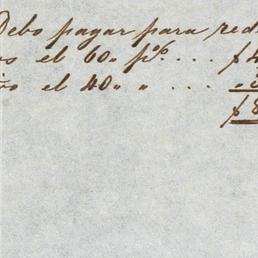 Debo pagar para red
os el 60 „ p% . . . $ 4
os el 40 „ „ . . . .
$ 8